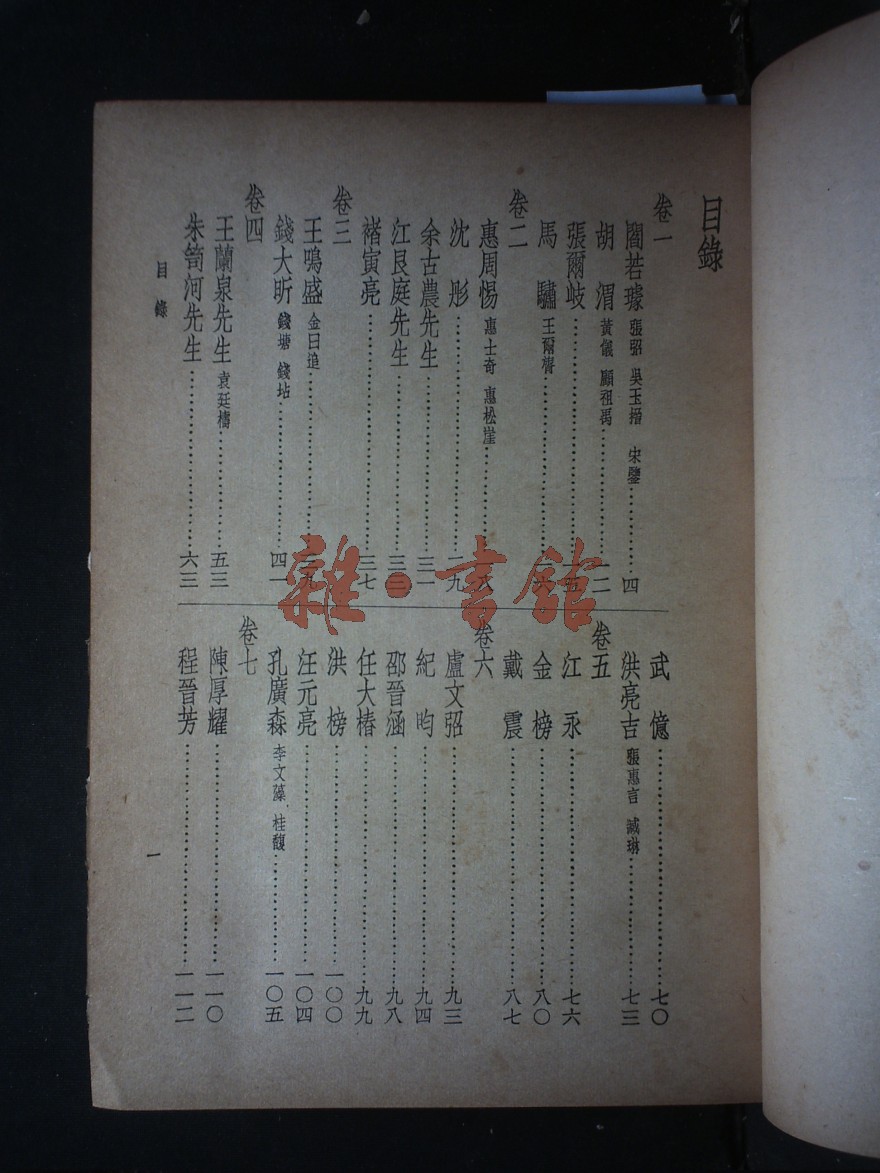 目錄
卷一
閻若璩 張弨 吳玉搢 宋鑒 四
胡渭 黃儀 顧祖禹 一二
張爾岐
馬驌 王爾膂
卷二
惠周惕 惠士奇 惠松崖
沈彤 二九
余古農先生 三一
江艮庭先生 三三
褚寅亮 三七
卷三
王鳴盛 金曰追
錢大昕 錢塘 錢坫 四一
卷四
王蘭泉先生 袁廷檮 五三
朱笥河先生 六三
武億 七〇
洪亮吉 張惠言 臧琳 七三
卷五
江永 七六
金榜 八〇
戴震 八七
卷六
盧文弨 九三
紀昀 九四
邵晉涵 九八
任大椿 九九
洪榜 一〇〇
汪元亮 一〇四
孔廣森 李文藻 桂馥 一〇五
卷七
陳厚耀 一一〇
程晉芳 一一二
目錄
一
雜·書館